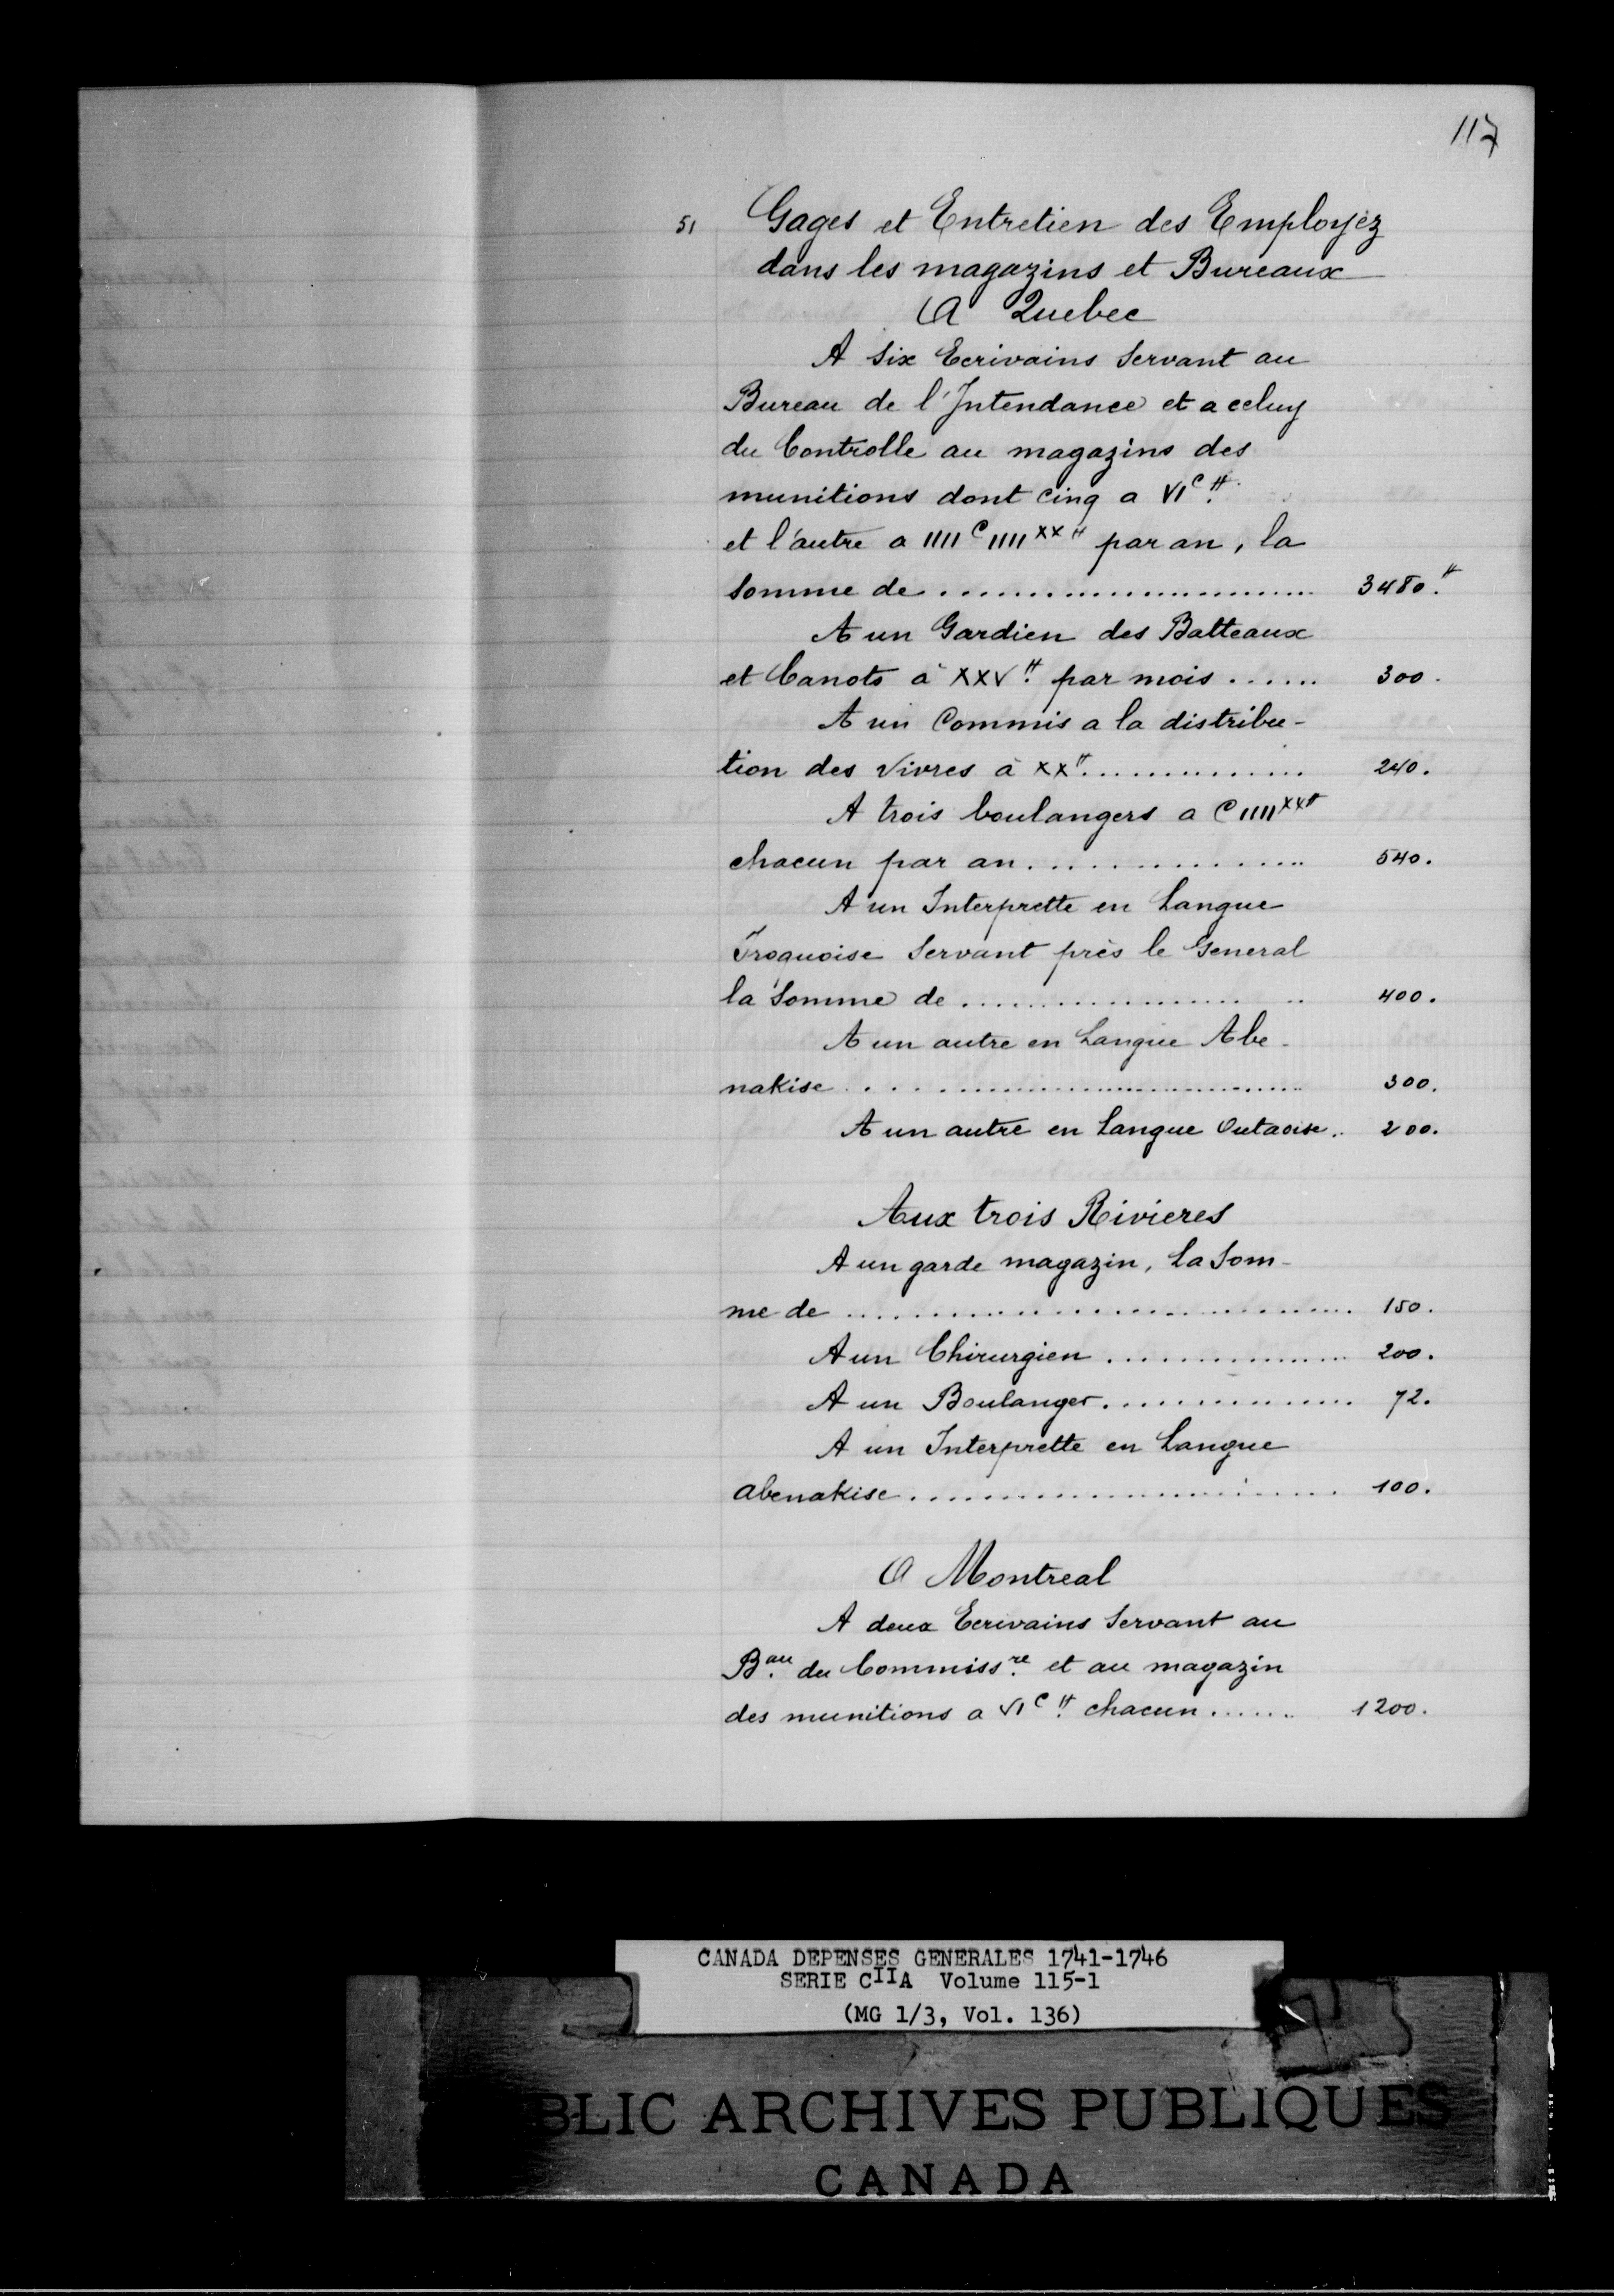 117
51 Gages et Entretien des Employéz
dans les magazins et Bureaux
A Quebec
A Six Ecrivains Servant au
Bureau de l'Intendance et a celuy
du Controlle au magazins des
munitions dont cinq a VI^C ₶.
et l'autre a IIII^C IIII^XX ₶ par an, la
Somme de ........................ 3480.₶
A un Gardien des Batteaux
et Canots à XXV.₶ par mois ...... 300.
A un Commis a la distribu-
tion des Vivres à XX₶. ............. 240.
A trois boulangers a C IIII^XX ₶
chacun par an ................ 540.
A un Interprette en Langue
Iroquoise Servant près le General
la Somme de .................... 400.
A un autre en Langue Abe-
nakise .............................. 300.
A un autre en Langue Outaoise.. 200.
Aux trois Rivieres
A un garde magazin, La Som-
me de .............................. 150.
A un Chirurgien ................ 200.
A un Boulanger ................ 72.
A un Interprette en Langue
abenakise ......................... 100.
A Montreal
A deux Ecrivains Servant au
B.^au du Commiss.^re et au magazin
des munitions a VI^C ₶. chacun ...... 1200.
CANADA DEPENSES GENERALES 1741-1746
SERIE C^IIA Volume 115-1
(MG 1/3, Vol. 136)
BLIC ARCHIVES PUBLIQUES
CANADA